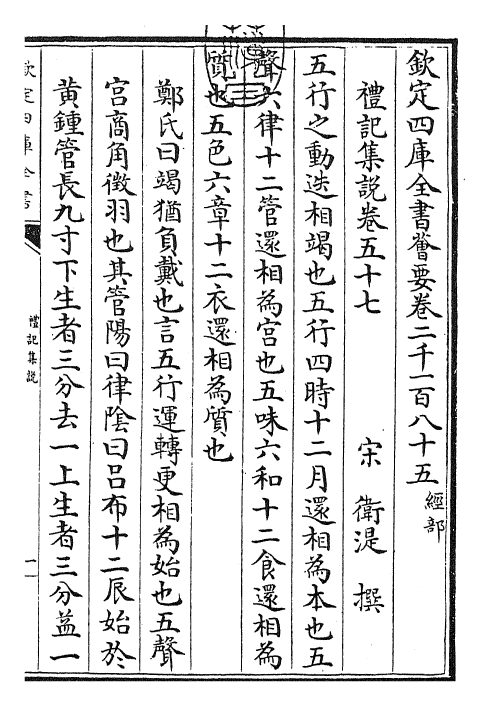 欽定四庫全書薈要卷二千一百八十五 經部
禮記集說卷五十七
宋 衛湜 撰
五行之動迭相竭也五行四時十二月還相為本也五
聲六律十二管還相為宮也五味六和十二食還相為
質也五色六章十二衣還相為質也
鄭氏曰竭猶負戴也言五行運轉更相為始也五聲
宮商角徵羽也其管陽曰律陰曰呂布十二辰始於
黃鍾管長九寸下生者三分去一上生者三分益一
欽定四庫全書
禮記集說
一